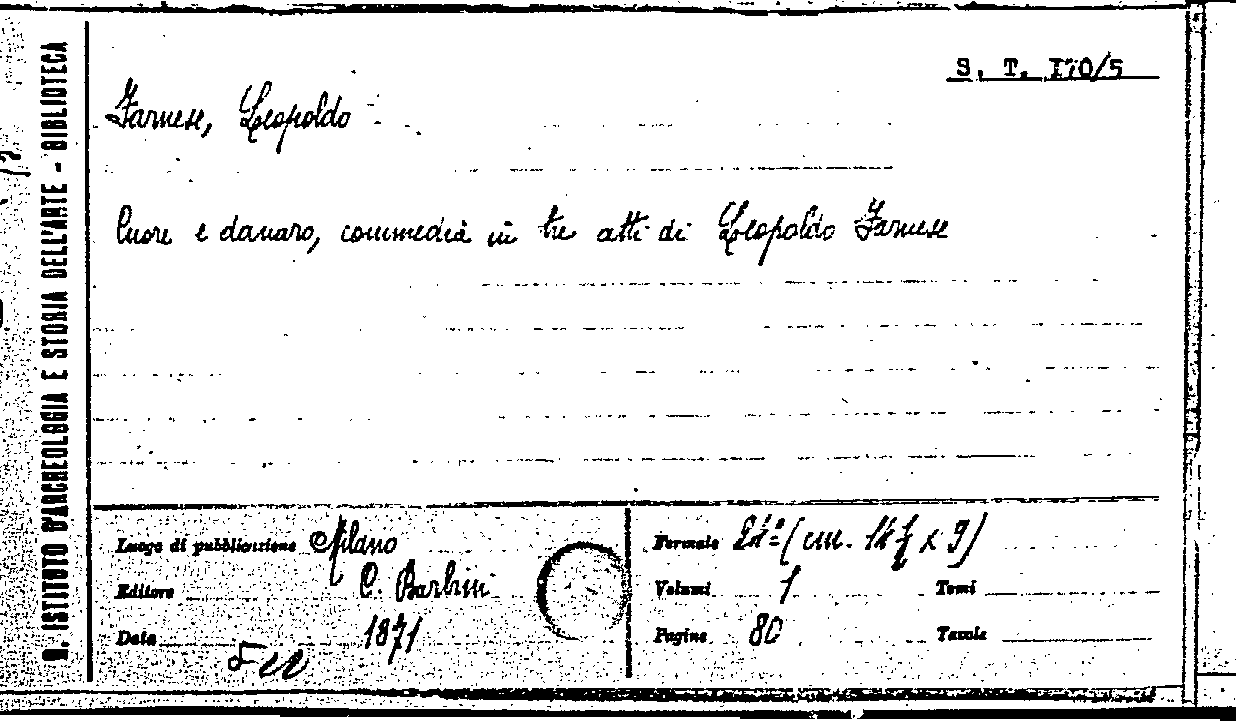 S. T. 170/5
Farnese, Leopoldo
Cuore e danaro, commedia in tre atti di Leopoldo Farnese
R. ISTITUTO D'ARCHEOLOGIA E STORIA DELL'ARTE - BIBLIOTECA
Luogo di pubblicazione Milano
Editore C. Barbini
Data 1871
Formato 24º (cm. 14 ½ x 9)
Volumi 1 Tomi
Pagine 80 Tavole